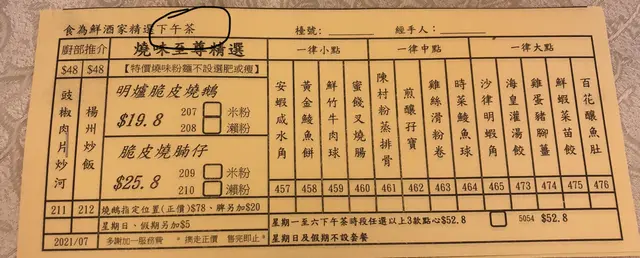 食為鮮酒家精選下午茶
檯號:
經手人:
廚部推介
燒味至尊精選
一律小點
一律中點
一律大點
$48
$48
【特價燒味粉麵不設選肥或瘦】
豉椒肉片炒河
揚州炒飯
明爐脆皮燒鵝
$19.8
207 米粉
208 瀨粉
脆皮燒腩仔
$25.8
209 米粉
210 瀨粉
安蝦咸水角
黃金鯪魚餅
鮮竹牛肉球
蜜餞叉燒腸
陳村粉蒸排骨
煎釀孖寶
雞絲滑粉卷
時菜鯪魚球
沙律明蝦角
海皇灌湯餃
雞蛋豬腳薑
鮮蝦菜苗餃
百花釀魚肚
457 458 459 460 461 462 463 464 465 473 474 475 476
211
212
燒鵝指定位置(正價)$78、髀另加$20
星期日、假期另加$5
星期一至六下午茶時段任選以上3款點心$52.8
5054 $52.8
2021/07
多謝加一服務費
*攜走正價
售完即止*
星期日及假期不設套餐